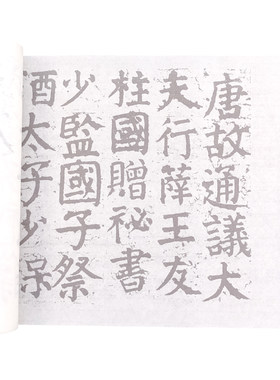 唐故通議大
夫行薛王友
柱國贈祕書
少監國子祭
酒太子少保